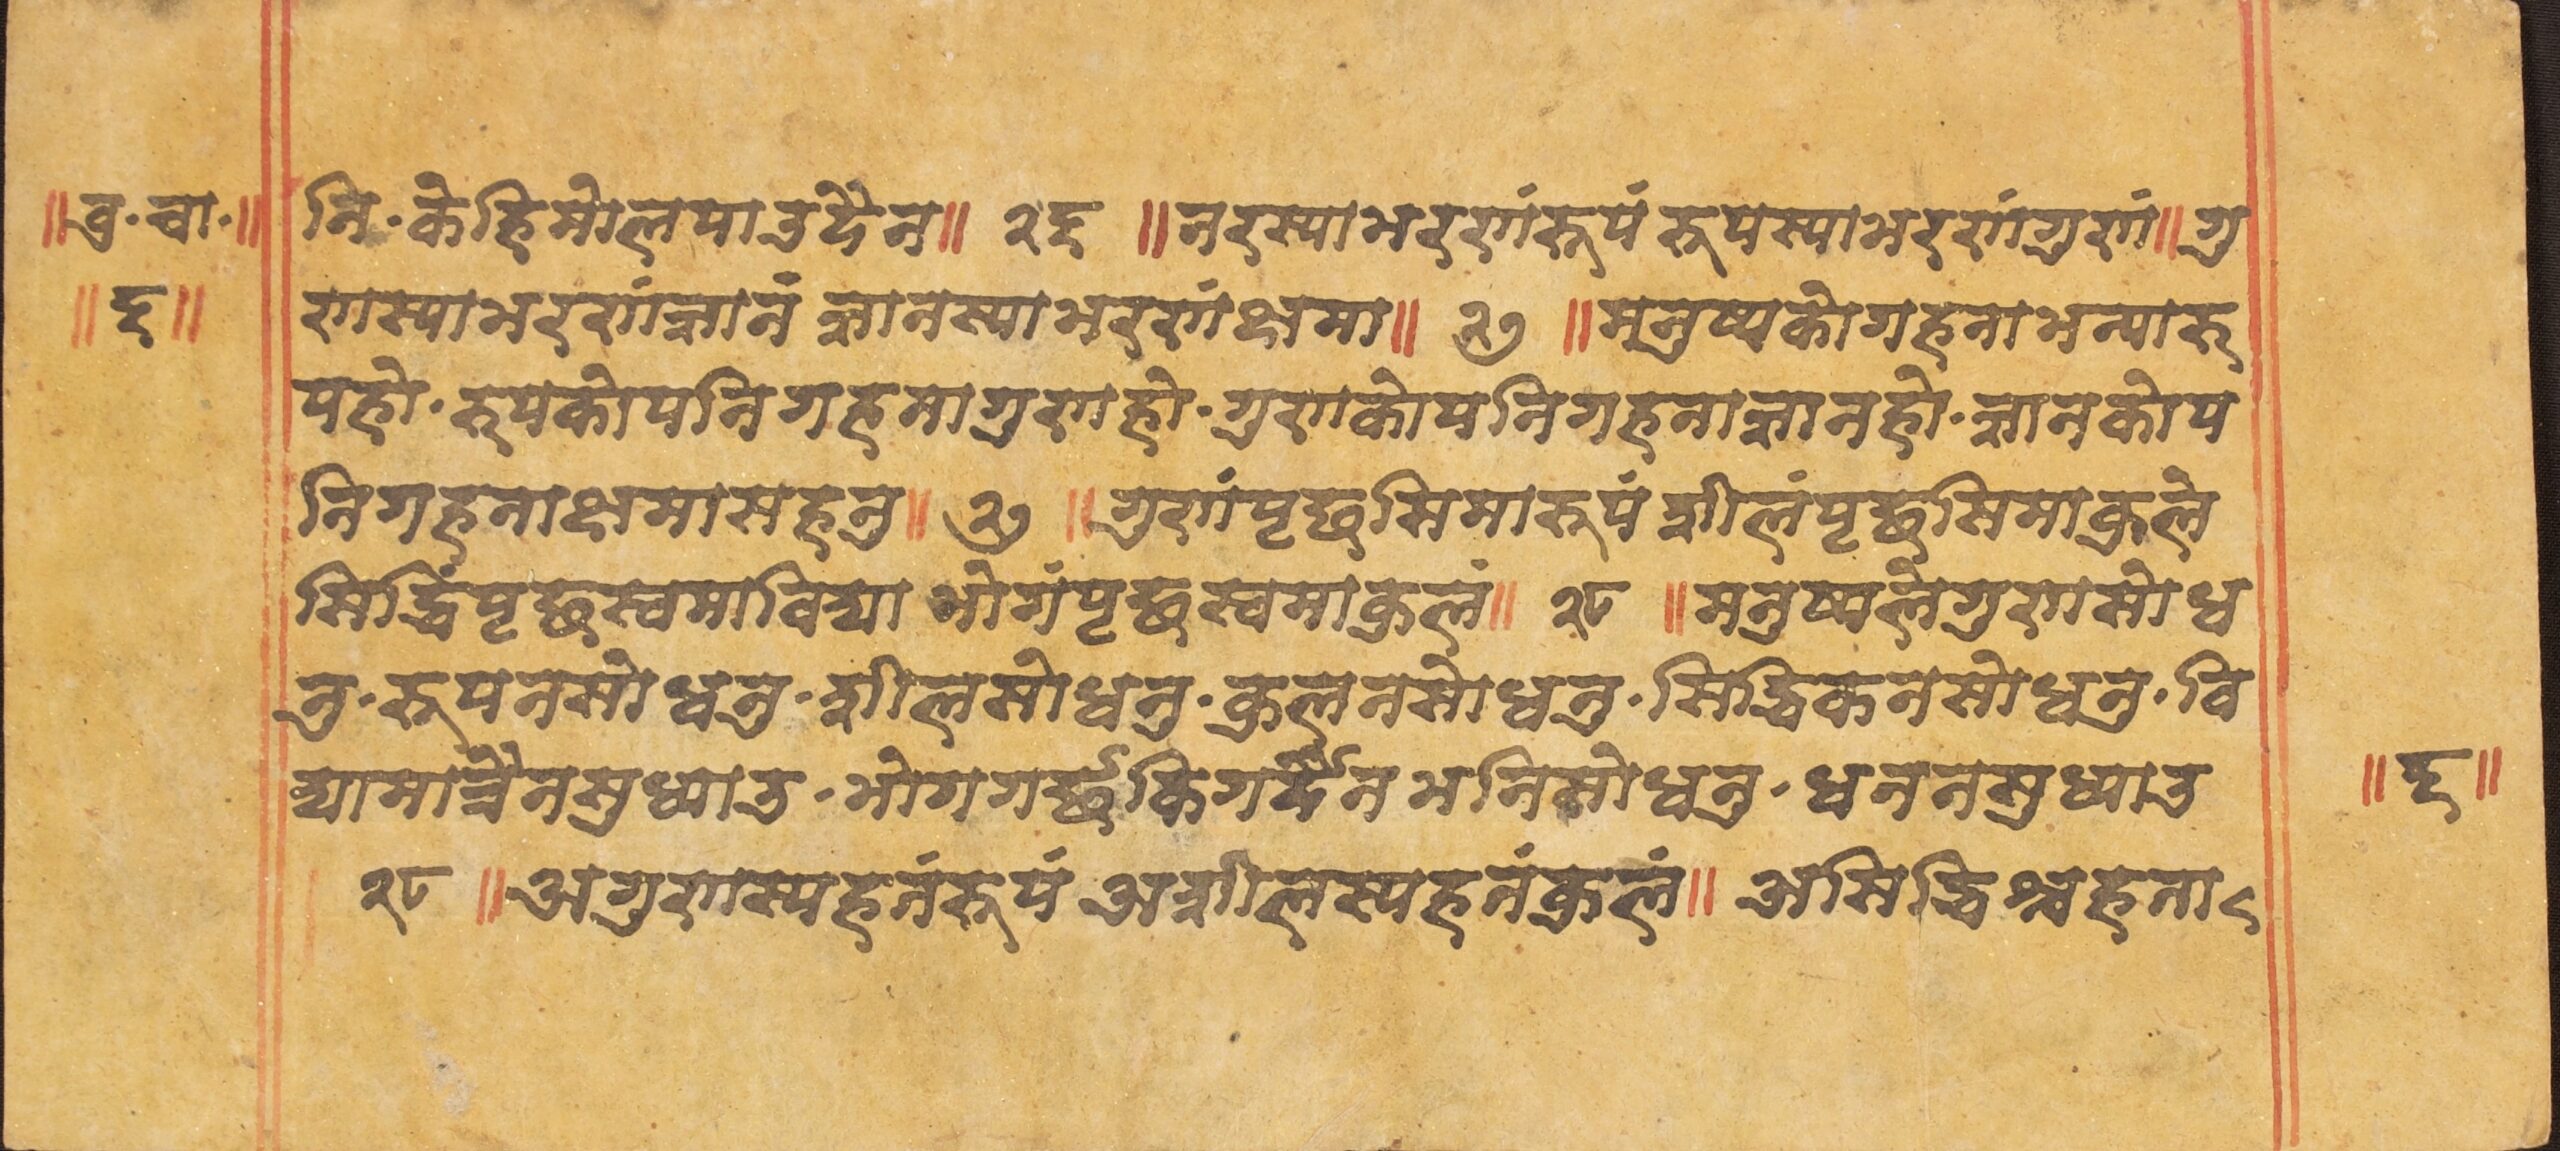 ॥वृ·चा·॥ नि·केहिमोलपाउदैन॥ २६ ॥नरस्याभरणंरूपं रूपस्याभरणंगुणं॥गु
॥६॥ णस्याभरणंज्ञानं ज्ञानस्याभरणंक्षमा॥ २७ ॥मनुष्यकोगहनाभन्यारु
पहो·रुपकोपनिगहमागुणहो·गुणकोपनिगहनाज्ञानहो·ज्ञानकोप
निगहनाक्षमासहनु॥ २७ ॥गुणंपृछसिमारूपं शीलंपृछसिमाकुले
सिद्धिंपृछस्वमाविद्या भोगंपृछस्वमाकुलं॥ २८ ॥मनुष्यलेगुणसोध
नु·रूपनसोधनु·शीलसोधनु·कुलनसोधनु·सिद्धिकनसोधनु·वि
द्यामात्रैनसुध्याउ·भोगगर्छकिगर्दैनभनिसोधनु·धननसुध्याउ ॥६॥
२८ ॥अगुणस्यहनंरूपं अशीलस्यहनंकुलं॥ असिद्धिश्चहना८